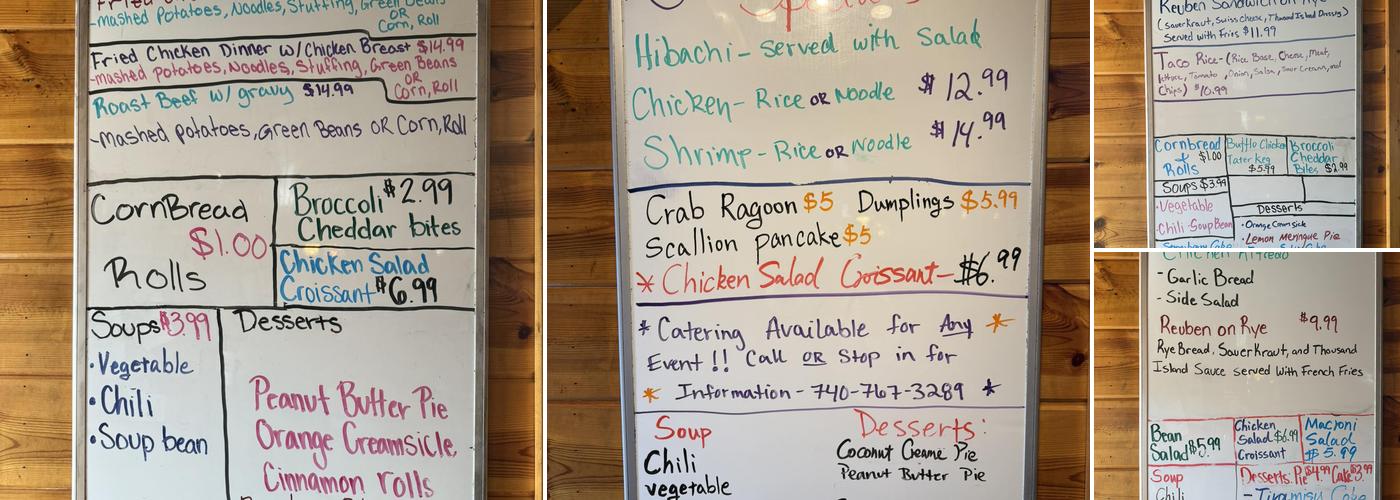 -mashed Potatoes, Noodles, Stuffing, Green Beans
OR
Corn, Roll
Fried Chicken Dinner w/Chicken Breast $14.99
-mashed potatoes, Noodles, Stuffing, Green Beans
OR
Corn, Roll
Roast Beef w/ gravy $14.99
-mashed potatoes, Green Beans OR Corn, Roll
CornBread
$1.00
Rolls
Broccoli $2.99
Cheddar bites
Chicken Salad
Croissant $6.99
Soups $3.99
• Vegetable
• Chili
• Soup bean
Desserts
Peanut Butter Pie
Orange Creamsicle,
Cinnamon rolls
Specials
Hibachi - served with Salad
Chicken - Rice OR Noodle $12.99
Shrimp - Rice OR Noodle $14.99
Crab Ragoon $5 Dumplings $5.99
Scallion pancake $5
* Chicken Salad Croissant - $6.99
* Catering Available for Any *
Event!! Call OR Stop in for
* Information - 740-767-3289 *
Soup
Chili
vegetable
Desserts:
Coconut Creame Pie
Peanut Butter Pie
Reuben Sandwich on Rye
(Sauerkraut, Swiss cheese, Thousand Island Dressing)
Served with Fries $11.99
Taco Rice - (Rice Base, Cheese, Meat,
lettuce, Tomato, Onion, Salsa, Sour Cream, and
Chips) $10.99
Cornbread
+ $1.00
Rolls
Buffalo Chicken
Tater Keg
$5.99
Broccoli
Cheddar
Bites $2.99
Soups $3.99
• Vegetable
• Chili • Soup Bean
Desserts
• Orange Creamsicle
• Lemon Meringue Pie
Strawberry Cake
Chicken Alfredo
- Garlic Bread
- Side Salad
Reuben on Rye $9.99
Rye Bread, SauerKraut, and Thousand
Island Sauce served with French Fries
Bean
Salad $5.99
Chicken
Salad $6.99
Croissant
Macroni
Salad
$5.99
Soup
Chili
Desserts. Pie $4.99 Cake $3.99
- Tiramisu Cake